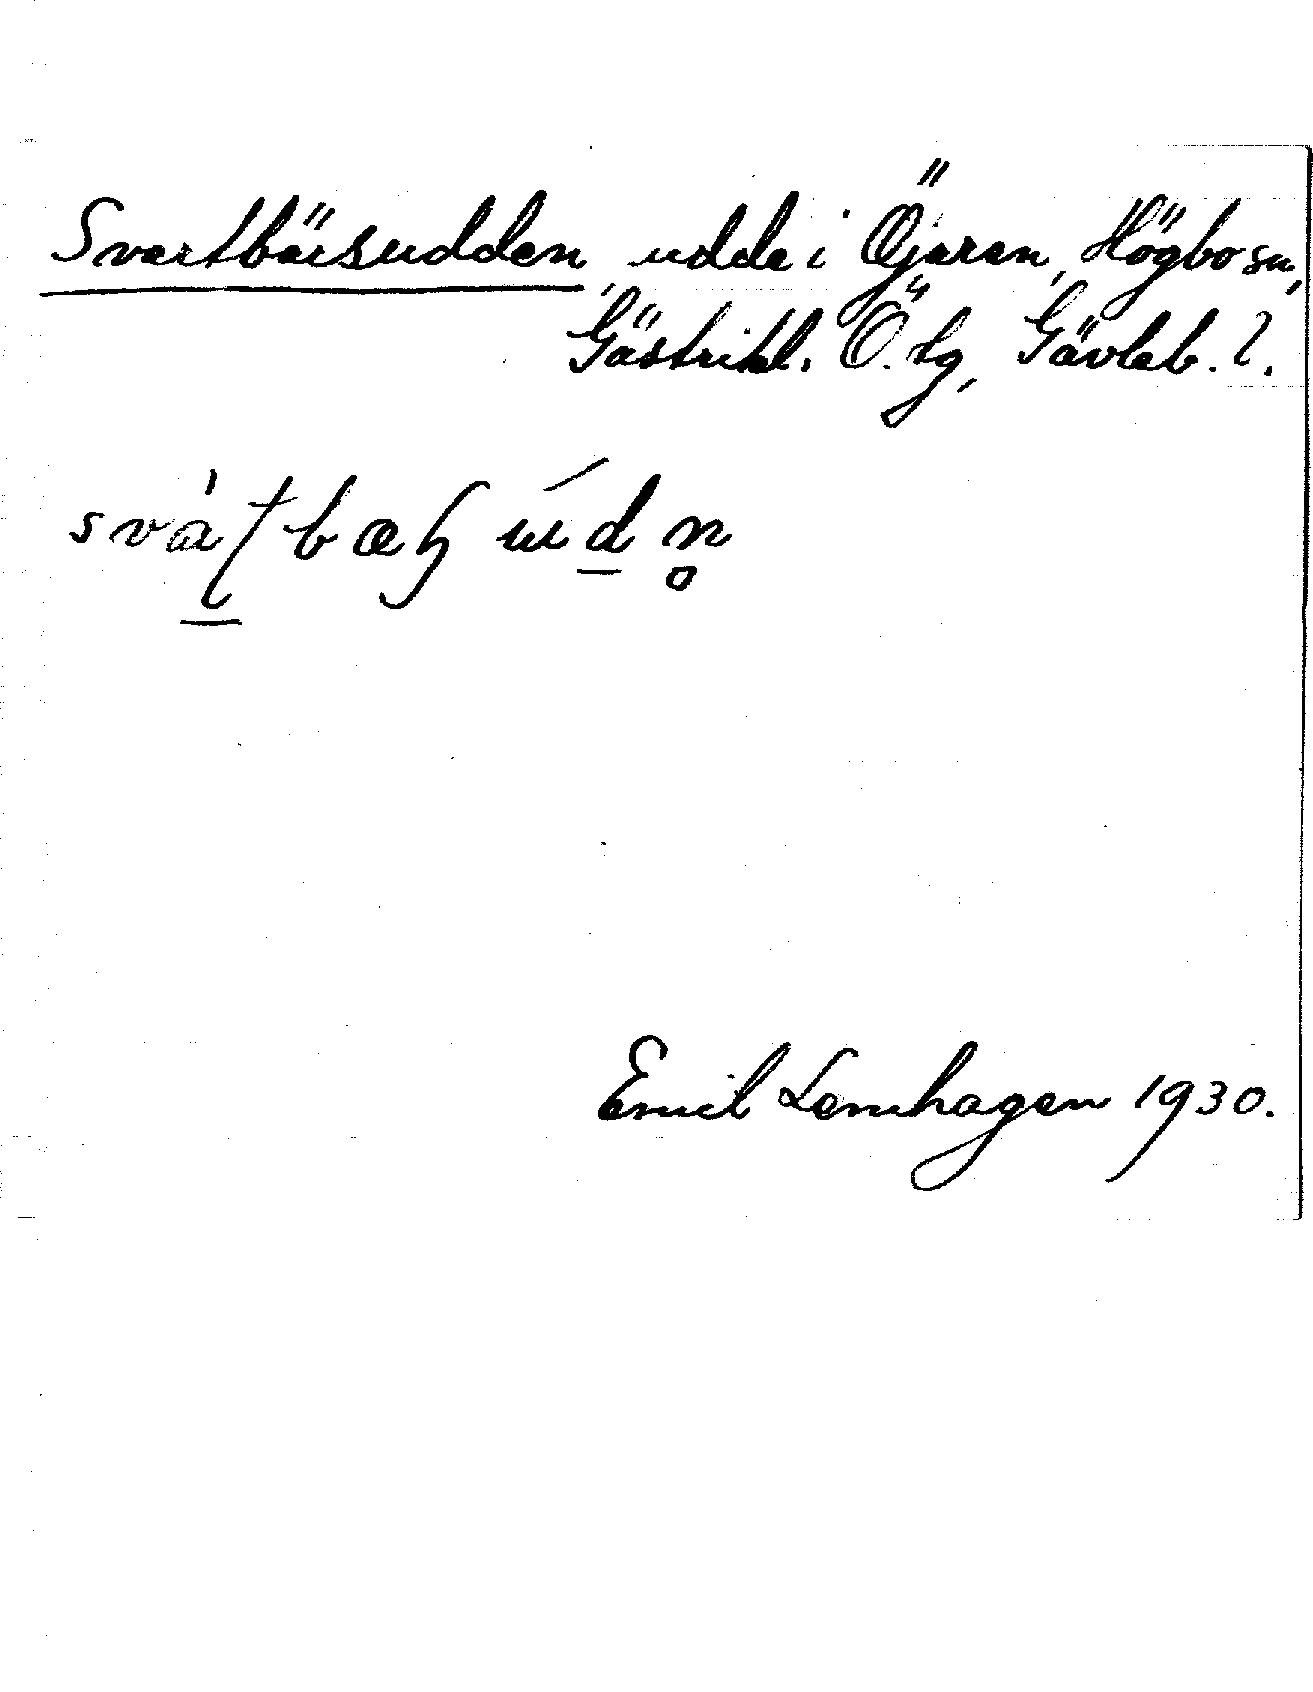 Svartbärsudden, udde i Öjaren, Högbo sn,
Gästrikl. Ö. tg, Gävleb. l.
Emil Lemhagen 1930.